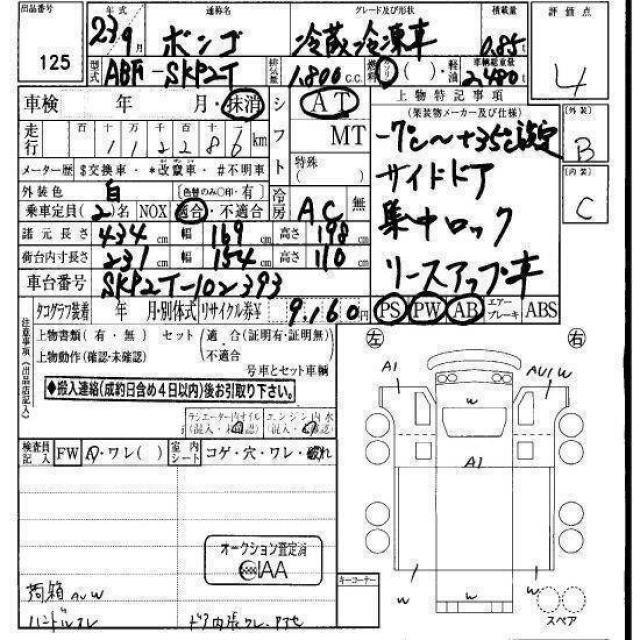 出品番号
125
年式
23 9月
通称名
ボンゴ
グレード及び形状
冷蔵冷凍車
積載量
0.85t
評価点
4
型式
ABF-SKP2T
排気量
1,800 C.C.
燃料
ガソリン ( )・軽油
車輌総重量
2,480t
車検 年 月・抹消
シフト
AT
MT
特殊
( )
上物特記事項
(架装物メーカー及び仕様)
-7℃〜+35℃設定
サイドドア
集中ロック
リースアップ車
(外装)
B
(内装)
C
走行
百 十 万 千 百 十
112286 km
メーター歴 $交換車・*改竄車・#不明車
外装色 白
[色替のみ○印・有]
冷房 AC 無
乗車定員(2)名 NOX 適合・不適合
諸元長さ 434cm 幅 169cm 高さ 198cm
荷台内寸長さ 231cm 幅 154cm 高さ 110cm
車台番号 SKP2T-102393
タコグラフ装着 年 月・別体式
リサイクル券¥ 9,160円
PS PW AB エアーブレーキ ABS
注意事項(出品店記入)
上物書類(有・無) セット(適 合(証明有・証明無)
上物動作(確認・未確認) 不適合
号車とセット車輌
◆搬入連絡(成約日含め4日以内)後お引取り下さい。
ラジエーター内オイル
(混入・未確認)
エンジン内水
(混入・未確認)
左
右
A1
AU1W
w
A1
w
w
w
検査員記入
FW
A・ワレ( )
室内シート
コゲ・穴・ワレ・破れ
オークション査定済
IAA
荷箱 AUW
ハンドルスレ
キーコーナー
スペア